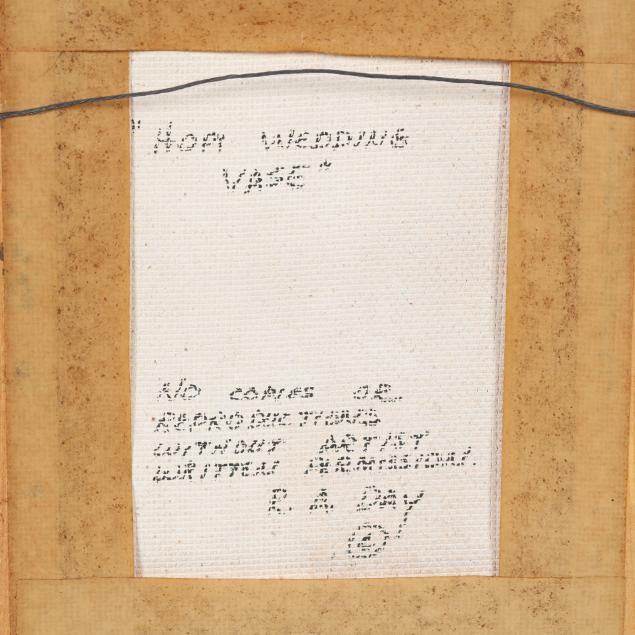 "HOPI WEDDING
VASE"
NO COPIES OR
REPRODUCTIONS
WITHOUT ARTIST
WRITTEN PERMISSION.
R. A. DAY
©